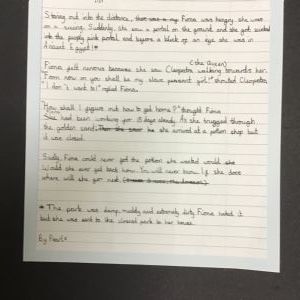 Staring out into the distance, Fiona was hungry. She was
on a swing. Suddenly, she saw a portal on the ground and she got sucked
into the purple pink portal and before a blink of an eye she was in
Ancient Egypt!*
(the Queen)
Fiona felt nervous because she saw Cleopatra walking towards her.
"From now on you shall be my slave peasant girl!" shouted Cleopatra
"I don't want to!" replied Fiona.
"How shall I figure out how to get home?" thought Fiona
had been working for 15 days already. As she trugged through
the golden sand she arrived at a potion shop but
it was closed.
Sadly Fiona could never get the potion she wanted would she
Would she ever get back home. I'm will never know. If she does
where will she go next.
* The park was damp, muddy and extremely dirty Fiona hated it
but she was sent to the closest park to her house.
By Pearl